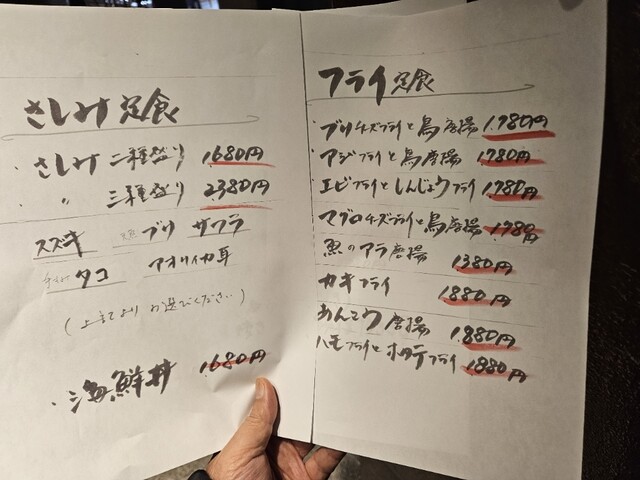 さしみ定食
・さしみ 二種盛り 1680円
・〃 三種盛り 2380円
スズキ 天然 ブリ サワラ
タコ アオリイカ耳
(上記よりお選びください)
・海鮮丼 1680円
フライ定食
・ブリチーズフライと鳥唐揚 1.780円
・アジフライと鳥唐揚 1780円
・エビフライとしんじょうフライ 1.780円
マグロチーズフライと鳥唐揚 1780円
魚のアラ唐揚 1380円
カキフライ 1880円
あんこう唐揚 1.880円
ハモフライとホタテフライ 1880円